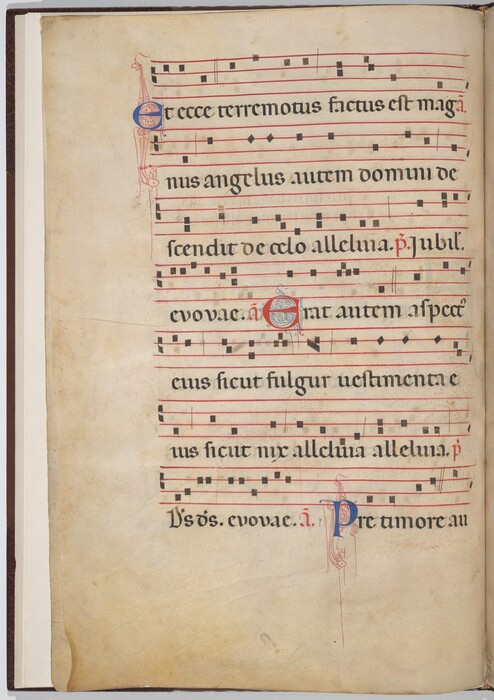 Et ecce terremotus factus est mag ã.
nus angelus autem domini de
scendit de celo alleluia. p̃. Jubil'.
evovae. ã Erat autem aspect'
eius ficut fulgur vestimenta e
ius sicut nix alleluia alleluia. p̃
D's d's. evovae. ã. Pre timore au